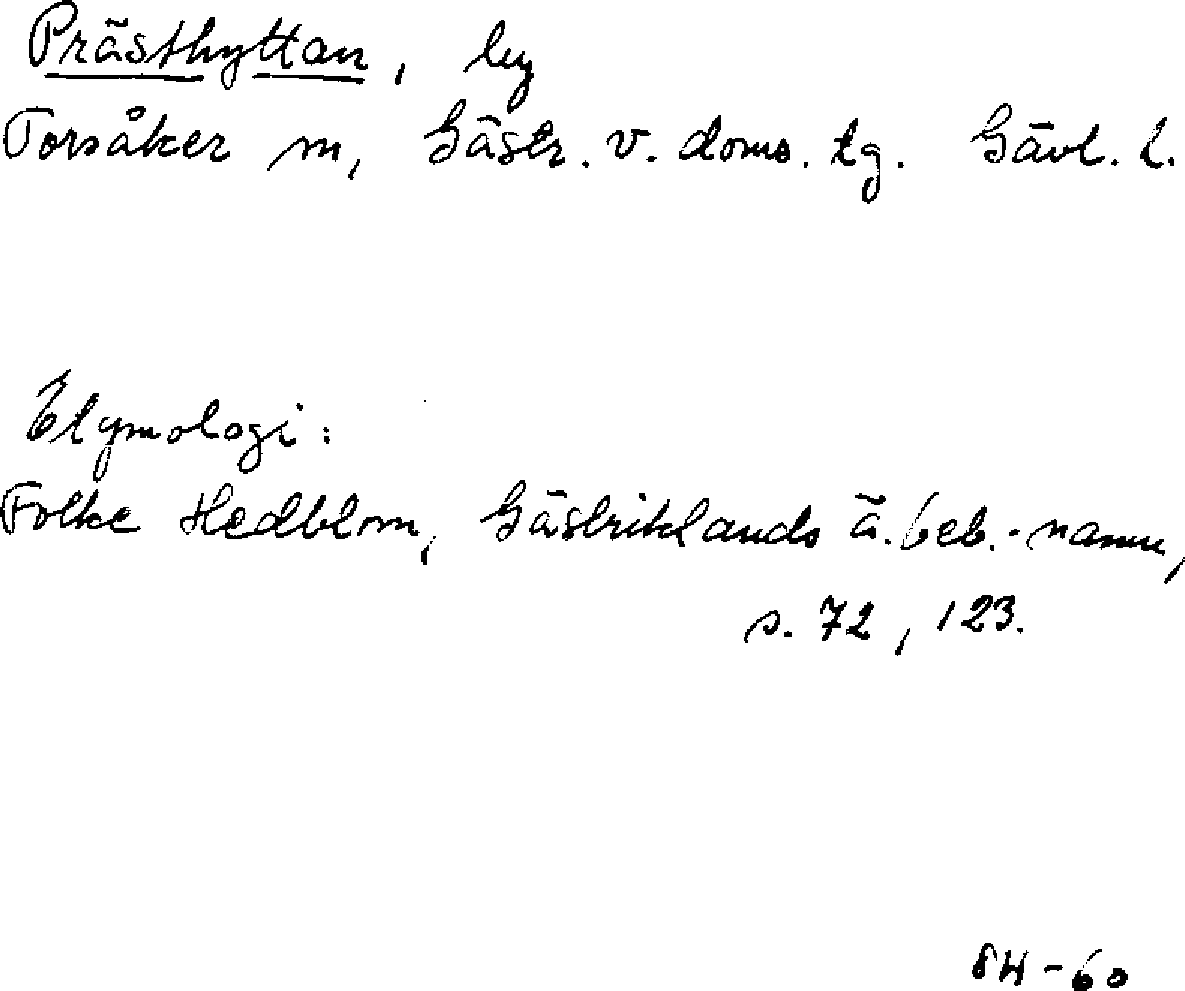 Prästhyttan, by
Torsåker sn, Gästr. v. doms. tg. Gävl. l.
Etymologi:
Folke Hedblom, Gästriklands ä. beb.-namn,
s. 72, 123.
SH-60